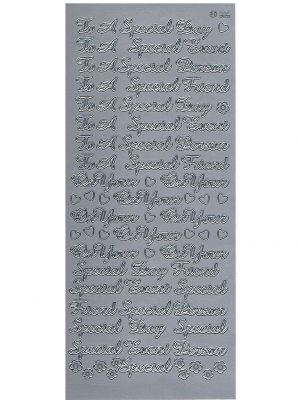 To A Special Guy
To A Special Aunt
To A Special Person
To A Special Friend
To A Special Guy
To A Special Aunt
To A Special Person
To A Special Friend
On Your On Your
On Your
On Your On Your
On Your
On Your On Your
Special Guy Friend
Special Aunt Special
Friend Special Person
Special Guy Special
Special Aunt Person
Special